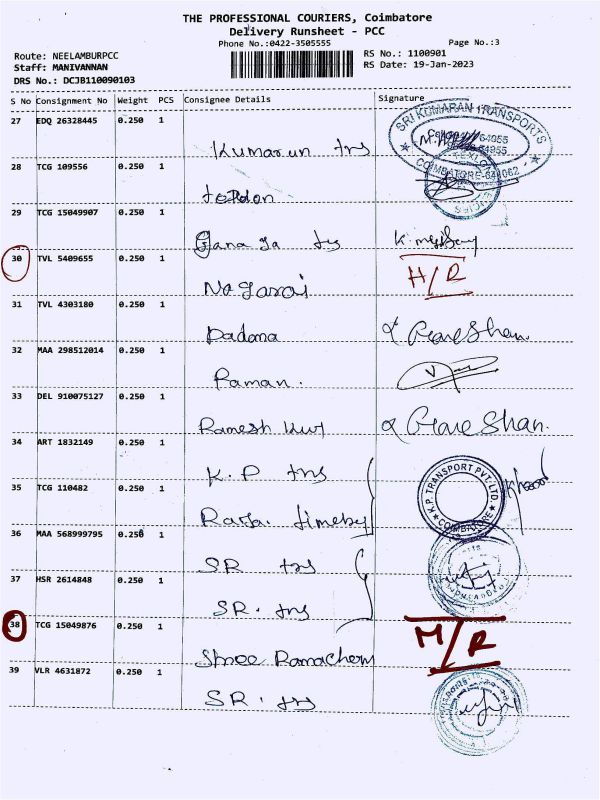 THE PROFESSIONAL COURIERS, Coimbatore
Delivery Runsheet - PCC
Phone No.:0422-3505555
Page No.:3
Route: NEELAMBURPCC
RS No.: 1100901
Staff: MANIVANNAN
RS Date: 19-Jan-2023
DRS No.: DCJB110090103
S No Consignment No Weight PCS Consignee Details Signature
27 EDQ 26328445 0.250 1
SRI KUMARAN TRANSPORTS
COIMBATORE-641062
28 TCG 109556 0.250 1
29 TCG 15049907 0.250 1
30 TVL 5409655 0.250 1
Nagaraj
31 TVL 4303180 0.250 1
Padama
32 MAA 298512014 0.250 1
Raman.
33 DEL 910075127 0.250 1
Ramesh
34 ART 1832149 0.250 1
K.P trs
K.P. TRANSPORT PVT. LTD.
COIMBATORE
35 TCG 110482 0.250 1
36 MAA 568999795 0.250 1
SR trs
37 HSR 2614848 0.250 1
SR. trs
38 TCG 15049876 0.250 1
M/R
Shree
39 VLR 4631872 0.250 1
SR. trs